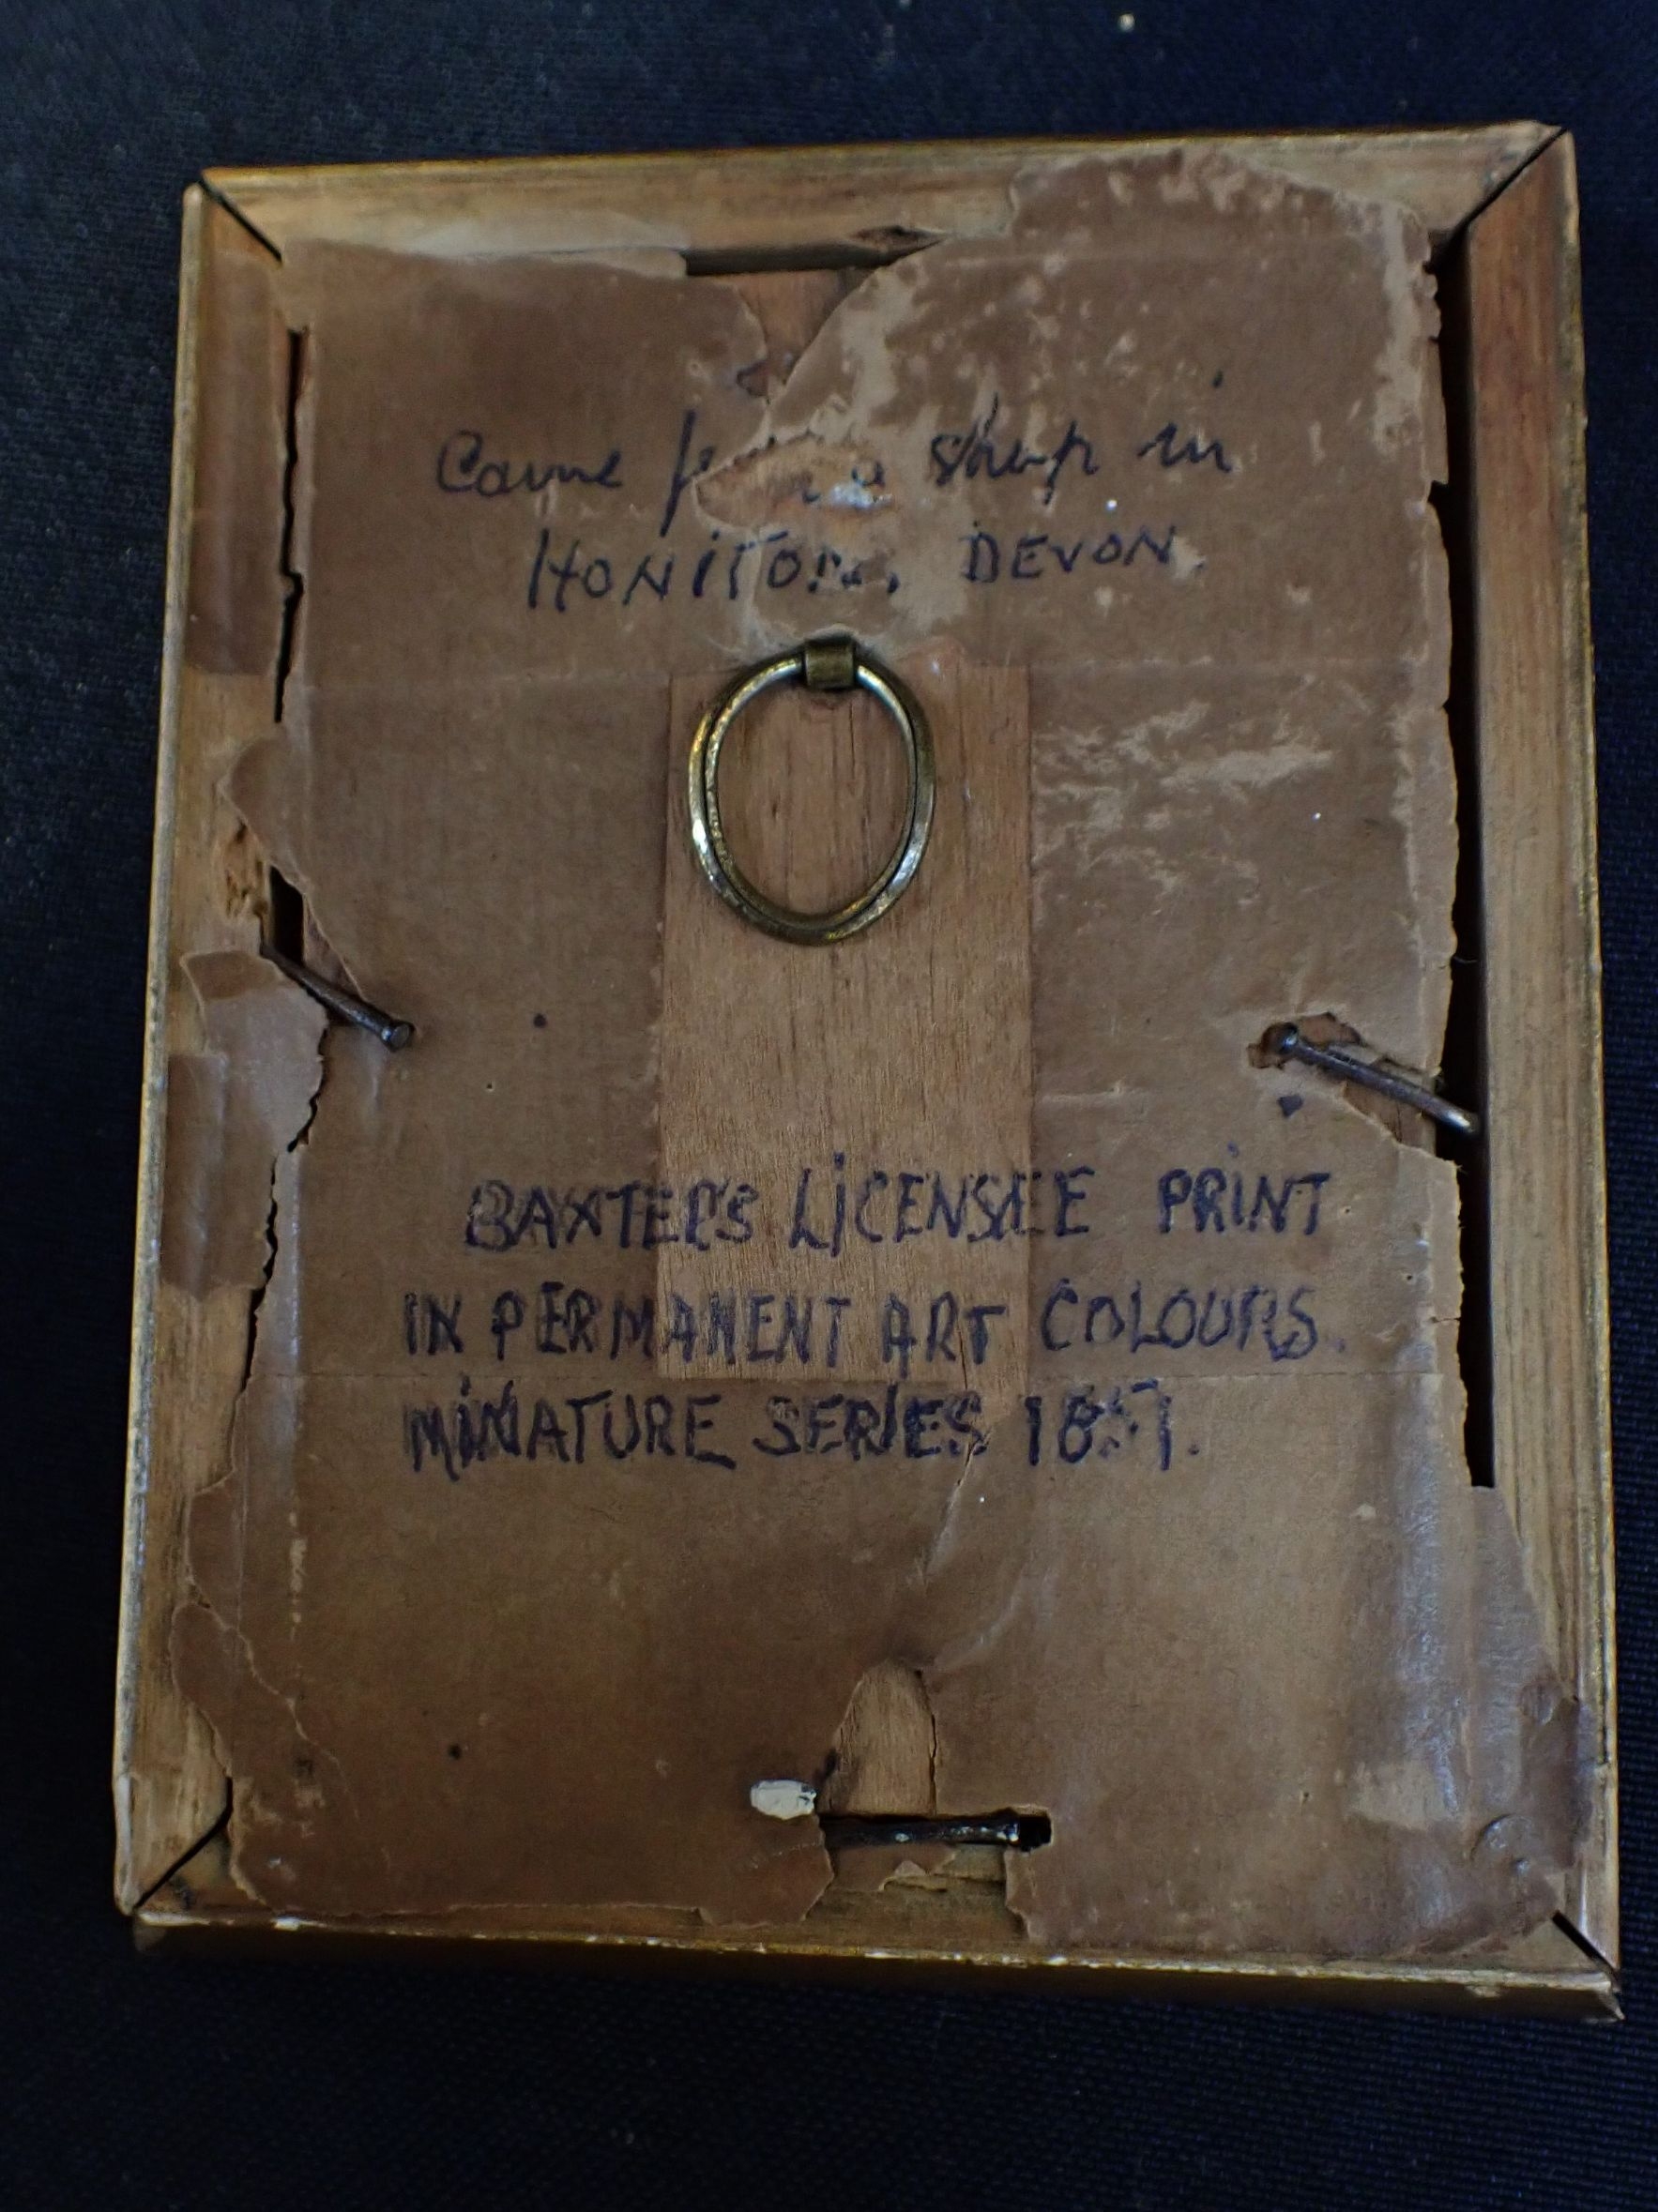 Came a shop in
HONITON, DEVON.
BAXTER'S LICENSEE PRINT
IN PERMANENT ART COLOURS.
MINATURE SERIES